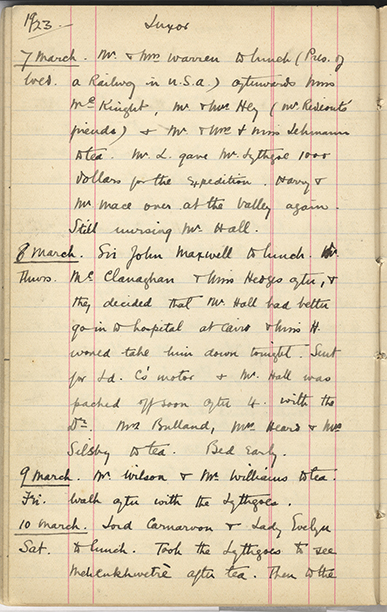 1923. Luxor
7 March. Mr. & Mrs Warren to lunch (Pres. of
Wed. a Railway in U.S.A.) afterwards Miss
McKnight, Mr & Mrs Hey (Mr Rideouts'
friends) & Mr & Mrs & Miss Lehmann
to tea. Mr. L. gave Mr Lythgoe 1000
dollars for the Expedition. Harry &
Mr Mace over at the Valley again.
Still nursing Mr Hall.
8 March. Sir John Maxwell to lunch. Mr.
Thurs. McClanaghan & Miss Hedges after, &
they decided that Mr. Hall had better
go in to hospital at Cairo & Miss H.
would take him down tonight. Sent
for Ld. C's motor & Mr. Hall was
packed off soon after 4. with the
Dr. Mrs Bulland, Mrs Heard & Mrs
Silsby to tea. Bed Early.
9 March. Mr Wilson & Mr Williams to tea.
Fri. Walk after with the Lythgoes.
10 March. Lord Carnarvon & Lady Evelyn
Sat. to lunch. Took the Lythgoes to see
Mehenkhwetrè after tea. Then to the